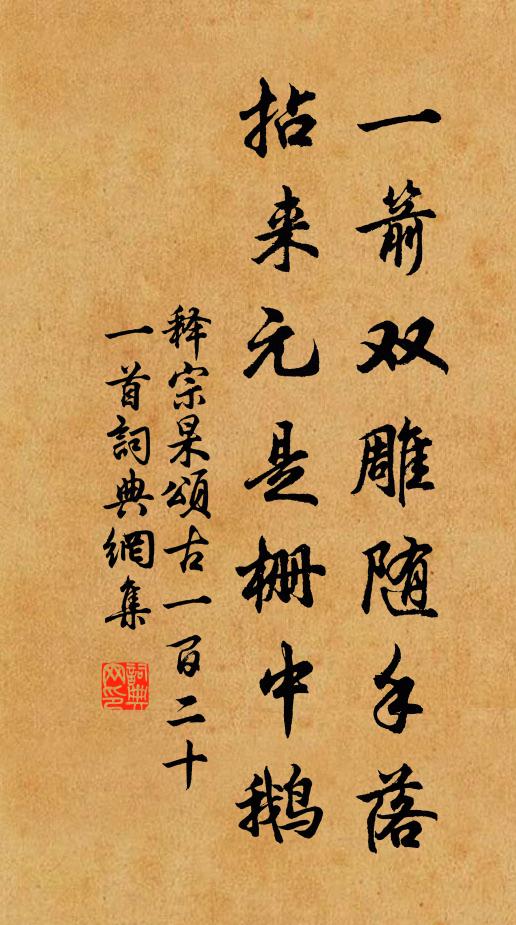 一箭双雕随手落
拈来元是栅中鹅
释宗杲颂古一百二十
一首詞典網集
詞典
网印